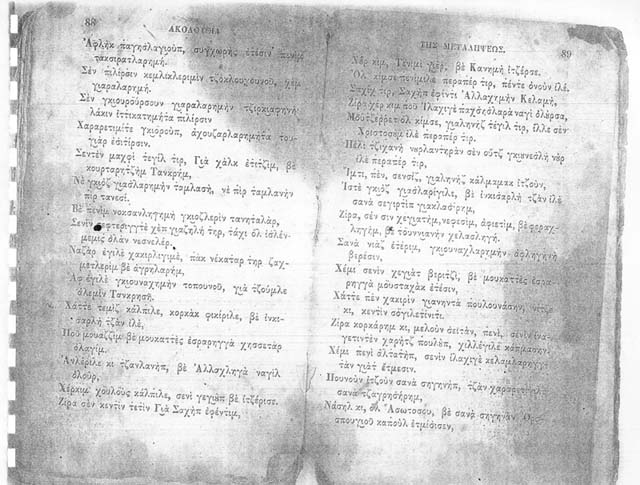 88
ΑΚΟΛΟΥΘΙΑ
Ἀφλὴκ παγησλαγιοὺπ, συγχωρη ἐτεσὶν πενὶμ
τακσιρατλαρημή.
Σὲν πιλίρσιν κεμλικλεριμὶν τζοκλουγουνοῦ, χὲμ
γιαραλαρημή.
Σὲν γκιουροῦρσουν γιαραλαρημὴν
λάκιν ἰττικατημήτα πιλίρσιν
Χαραρετιμίτε γκιοροὺπ, ἀχουζαρλαρημήτα του-
γιὰρ ἐσιτίρσιν.
Σεντὲν μαχφὶ τεγὶλ τιρ, Γιὰ χὰλκ ἐτιτζὶμ, βὲ
κουρταρητζὴμ Τανκρήμ,
Νὲ γκιὸζ γιασλαρημὴν ταμλασὴ, νὲ πὶρ ταμλανὴν
πὶρ τανεσί.
Βὲ πενὶμ νοκσανληγημὴ γκιοζλερὶν τανηταλὰρ,
Σενὶν τεφτεριγτὲ χὲπ γιαζηλὴ τηρ, τάχι ὀλ ἰσλὲν-
μεμὶς ὀλὰν νεσνελέρ.
Ναζὰρ ἐγιλὲ χακιρλιγιμὲ, πὰκ νέκαταρ τηρ ζαχ-
μετλερὶμ βὲ ἀγρηλαρήμ,
Ἀφ ἐγιλὲ γκιουναχημὴν τοπουνοῦ, γιὰ τζούμλε
ἀλεμὶν Τανκρησή.
Χάττε τεμὶζ κάλπιλε, κορκὰκ φικίριλε, βὲ ἰνκι-
σαρλὴ τζὰν ἰλὲ,
Ποῦ μουαζζὶμ βὲ μουκαττὲς ἐσραρηγγὰ χησσετὰρ
ὀλαγίμ.
Ἀνλέριλε κι τζανλανὴπ, βὲ Ἀλλαχληγὰ ναγὶλ
ὀλοὺρ,
Χέρκιμ χουλοὺς κάλπιλε, σενὶ γεγιὸπ βὲ ἰτζέρισε.
Ζίρα σὲν κεντὶν τετὶν Γιὰ Σαχὴπ ἐφέντιμ,
ΤΗΣ ΜΕΤΑΛΗΨΕΩΣ.
89
Χὲρ κὶμ, Τενιμὶ γὲρ, βὲ Κανημὴ ἰτζέρσε.
Ὀλ κίμσε πενιμλὲ περαπέρ τιρ, πέντε ὀνοὺν ἰλέ.
Σαχὴχ τιρ, Σαχὴπ ἐφέντι Ἀλλαχημὴν Κελαμὴ,
Ζίρα χὲρ κὶμ ποὺ Ἰλαχιγὲ παχσησλαρὰ ναγὶλ ὀλὲρσα,
Μουτζερρὲτ ὀλ κίμσε, γιαλινὴζ τεγὶλ τιρ, ἴλλε σὲν
Χριστοσοὺμ ἰλὲ περαπέρ τιρ.
Πελὶ τζιχανὴ νουρλαντηρὰν σὲν οὒτζ γκιουνεσλὴ νοὺρ
ἰλὲ περαπέρ τιρ,
Ἴμτι, πὲν, σενσὶζ, γιαληνὴζ κάλμαμακ ἰτζοὺν,
Ἴστε γκιὸζ γιασλαρίγιλε, βὲ ἰνκισαρλὴ τζὰν ἰλὲ
σανὰ σεγιρτὶπ γιακλασήρημ,
Ζίρα, σὲν σιν χεγιατὴμ, νεφεσὶμ, ἀφιετὶμ, βὲ φεραχ-
ληγὴμ, βὲ τουννιανὴν χελασληγή.
Σανὰ νιὰζ ἐτέριμ, γκιουναχλαρημὴν ἀφληγηνὴ
βερέσιν,
Χέμι σενὶν χεγιὰτ βεριτζὶ, βὲ μουκαττὲς ἐσρα-
ρηγγὰ μουσταχὰκ ἐτέσιν,
Χάττε πὲν χακιρὶν γιανηντὰ πουλουνάσην,
κι, κεντὶν σόγιλετίνιτι.
Ζίρα κορκάρημ κι, μελοὺν σεϊτὰν, πενὶ, σενὶν ἐνα-
γετιντὲν χαρὴτζ πουλὲπ, χιλλέγιλε κάπμασην,
Χέμι πενὶ ἀλτατὴπ, σενὶν ἰλαχιγὲ κελαμλαρηγγ-
τὰν γιὰτ ἔτμεσιν.
Πουνοὺν ἰτζοὺν σανὰ σηγηνὴπ, τζὰν χαραρετιγλὲ
σανὰ τζαγρήσηρημ,
Νάσηλ κι, ὂλ Ἄσωτοσου, βὲ σανὰ σηγηνὰν Ὀρ-
σπουγιοῦ καποὺλ ἐτμίσισεν,